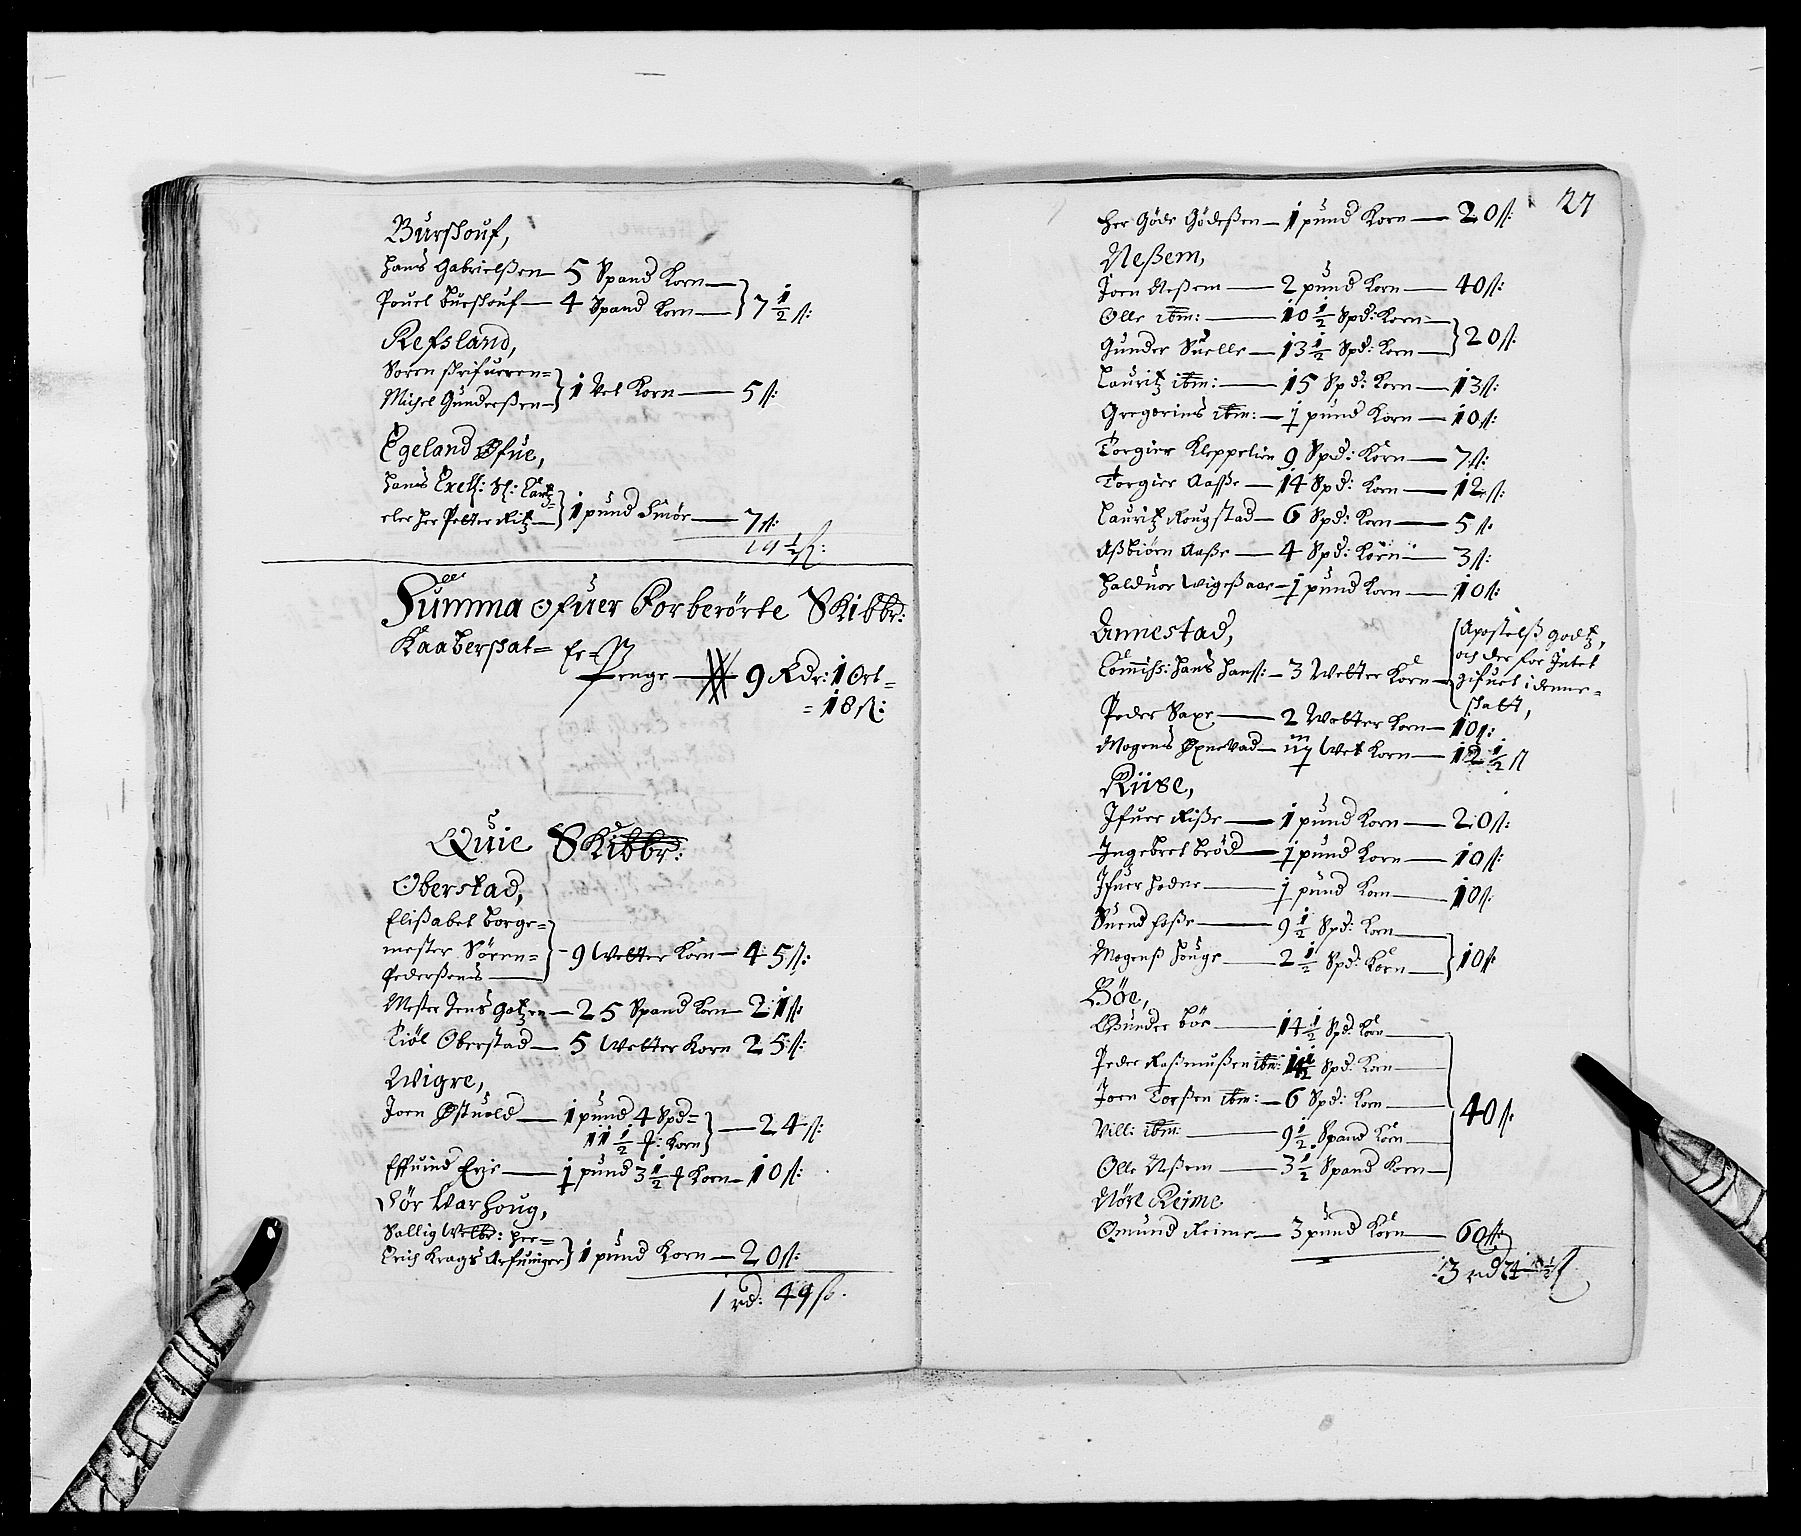 Burshouf,
Hans Gabrielßen — 5 Spand Korn —
Pouel Burshouf — 4 Spand Korn — } 7 1/2 ß:
Refsland,
Soren skrifueren =
Michel Gunderßen } 1 Vet Korn — 5 ß:
Egeland Øfue,
Hans
eler her Petter Ritz } 1 pund Smör — 7 ß:
19 1/2 ß:
Summa ofuer Forberörte Skibbr:
Kaaberskat = Er
Penge — 9 Rdr: 1 Ort =
= 18 ß:
Quie Skibbr:
Oberstad,
Elißabet borge =
mester Sören =
Pederßens — } 9 Wetter Korn — 45 ß:
Mester Jens Gotzen — 25 Spand Korn — 21 ß:
Kiöl Oberstad — 5 Wetter Korn 25 ß:
Wigre,
Joen Østuold — 1 pund 4 Spd =
11 1/2 : Korn } — 24 ß:
Effuind Erje — ½ pund 3 1/2 Korn — 10 ß:
Sör Warhoug,
Sallig Welbr: her =
Erich Krags Arfuinger } 1 pund Korn — 20 ß:
1 rd: 49 ß.
27
Her Göde Gödeßen — 1 pund Korn — 20 ß:
Neßem,
Joen Neßem — 2 pund Korn — 40 ß:
Olle ibm: — 10 1/2 Spd: Korn —
Gunder Suelle — 13 1/2 Spd: Korn — } 20 ß:
Lauritz ibm: — 15 Spd: Korn — 13 ß:
Gregorius ibm: — ½ pund Korn — 10 ß:
Torgier Kleppelien 9 Spd: Korn — 7 ß:
Torgier Aasße — 14 Spd: Korn — 12 ß:
Lauritz Rougstad — 6 Spd: Korn — 5 ß
Aßbiörn Aaße — 4 Spd: Korn — 3 ß:
Halduor Wigeßaae — ½ pund Korn — 10 ß:
Annestad,
Commiss: Hans Hanss: — 3 Wetter Korn — { Apostelß godtz,
och der for Intet
gifuet i denne =
skatt,
Peder Saxe — 2 Wetter Korn — 10 ß:
Mogens Øxnevad — Wet Korn — 12 1/2 ß
Riise,
Jfuer Riße — 1 pund Korn — 20 ß:
Ingebret bröd — ½ pund Korn — 10 ß:
Jfuer Hodne — ½ pund Korn — 10 ß:
Suend foße — 9 1/2 Spd: Korn —
Mogenß Houge — 2 1/2 Spd: Korn — } 10 ß
Böe,
Gunder böe — 14 1/2 Spd: Korn —
Peder Raßmußen ibm: Spd: Korn —
Joen Torßen ibm: — 6 Spd: Korn —
Vill: ibm: — 9 1/2 Spand Korn —
Olle Neßem — 3 1/2 Spand Korn — } 40 ß
Nöre Reime
Omund Reime — 3 pund Korn — 60 ß: